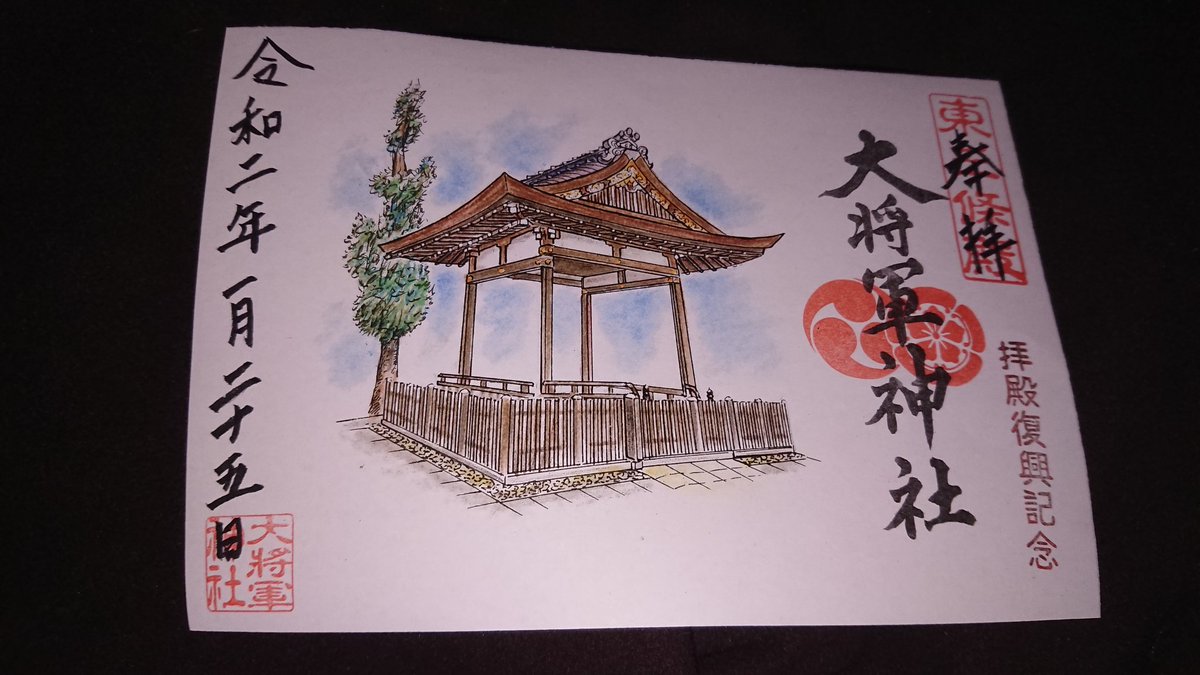 東三條殿
奉拝
拝殿復興記念
大将軍神社
令和二年一月二十五日
大將軍
神社